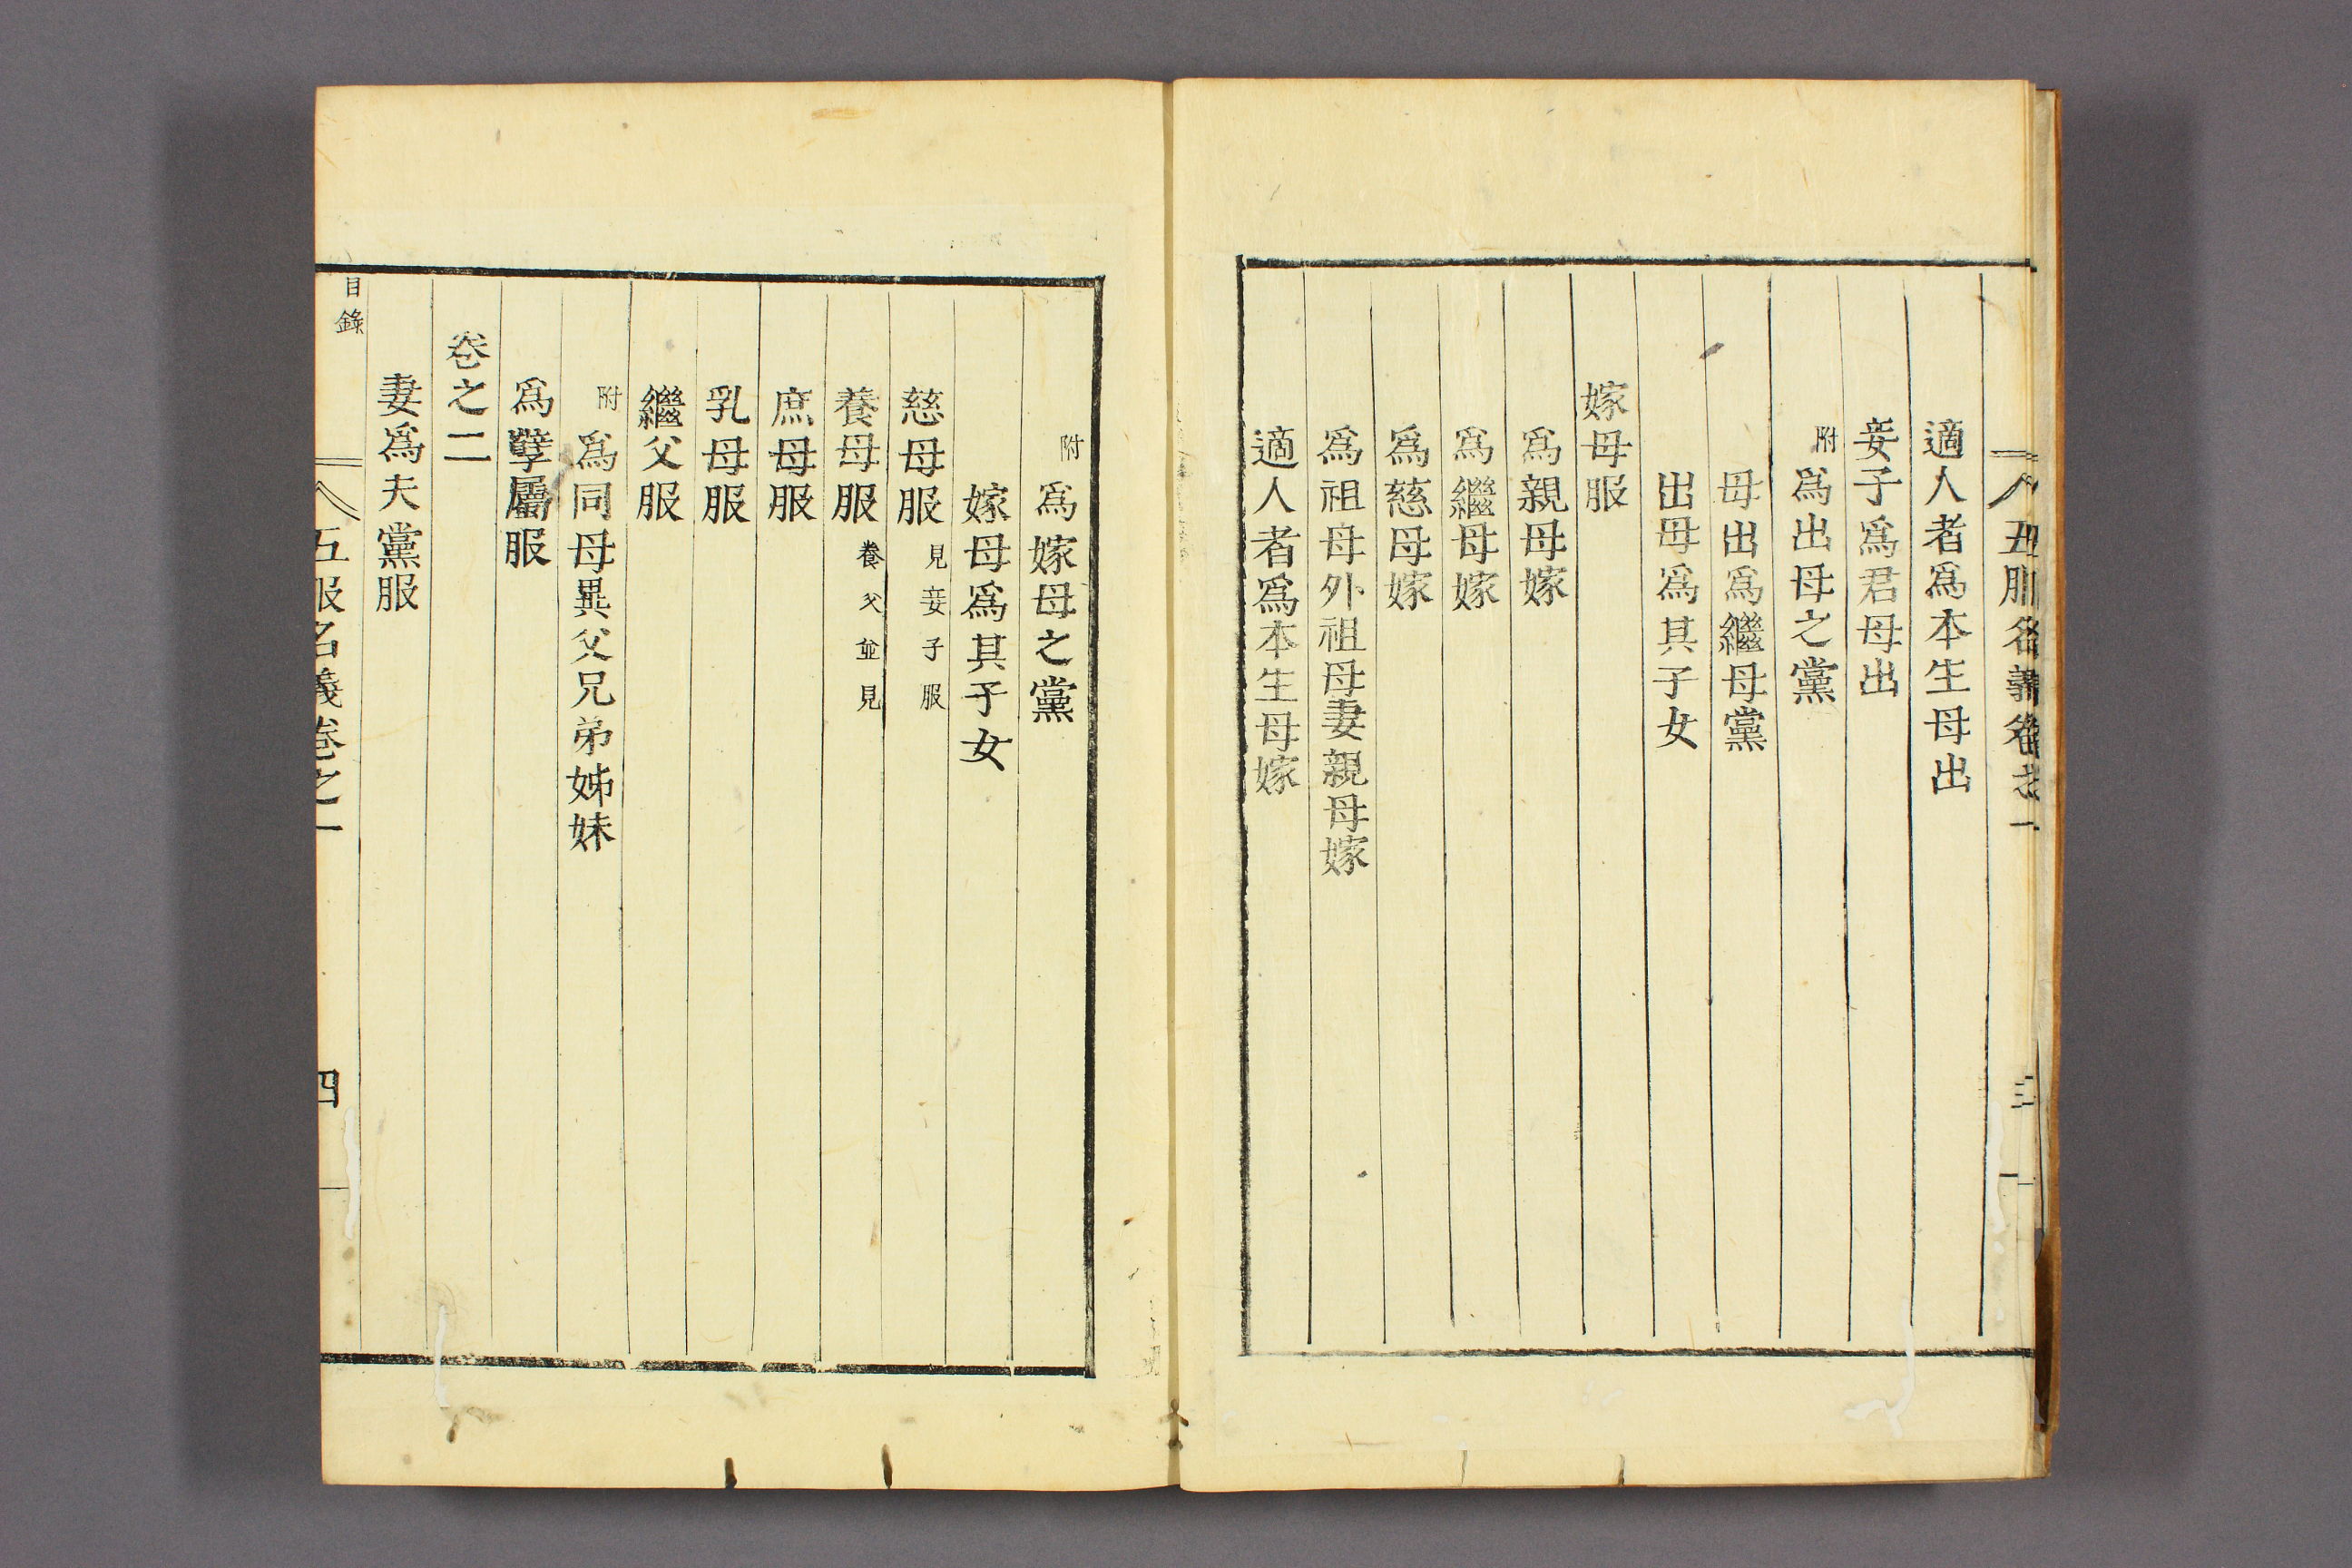 五服名義卷之一
三
適人者爲本生母出
妾子爲君母出
附爲出母之黨
母出爲繼母黨
出母爲其子女
嫁母服
爲親母嫁
爲繼母嫁
爲慈母嫁
爲祖母外祖母妻親母嫁
適人者爲本生母嫁
附爲嫁母之黨
嫁母爲其子女
慈母服見妾子服
養母服養父並見
庶母服
乳母服
繼父服
附爲同母異父兄弟姊妹
爲孽屬服
卷之二
妻爲夫黨服
目錄
五服名義卷之一
四